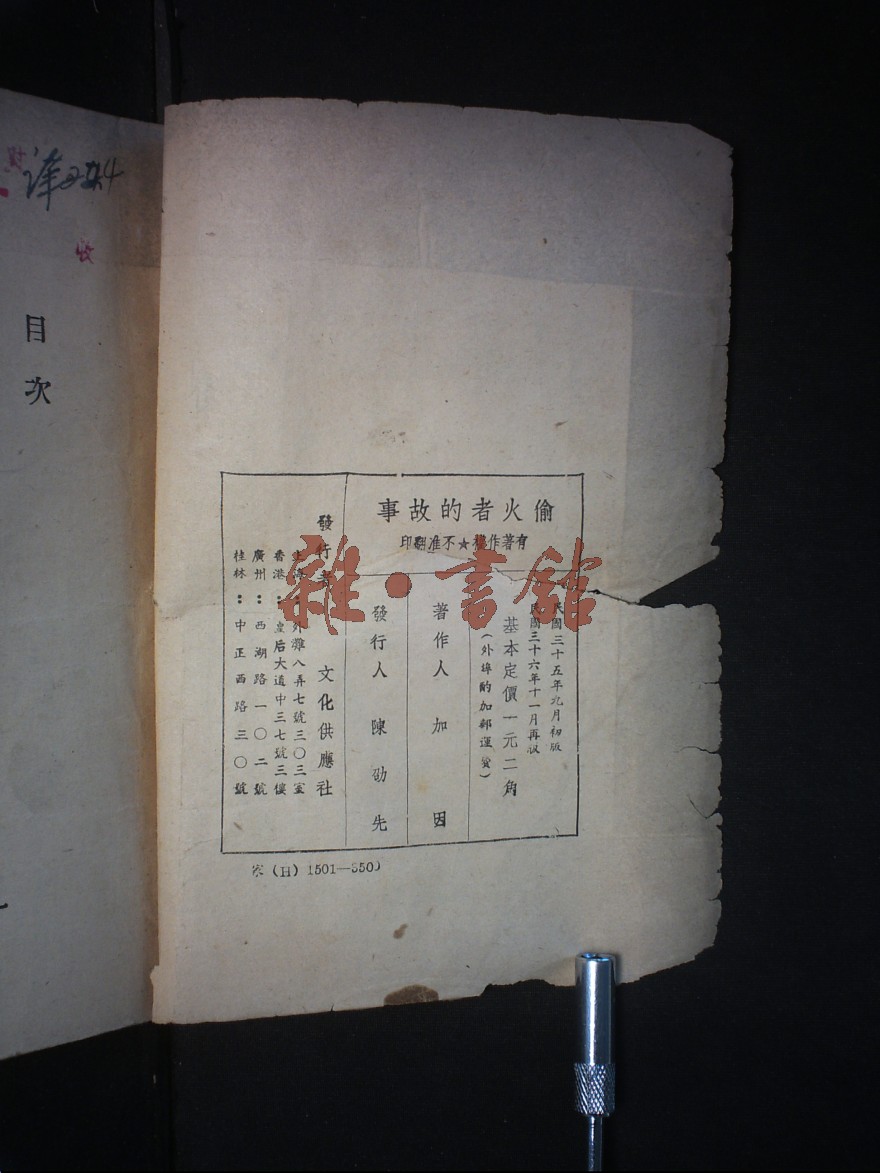 偷火者的故事
有著作權★不准翻印
民國三十五年九月初版
民國三十六年十一月再版
基本定價一元二角
（外埠酌加郵運費）
著作人 加因
發行人 陳劭先
發行者 文化供應社
上海：外灘八弄七號三〇三室
香港：皇后大道中三七號三樓
廣州：西湖路一〇二號
桂林：中正西路三〇號
(H) 1501—3500
目次
收
雜·書館